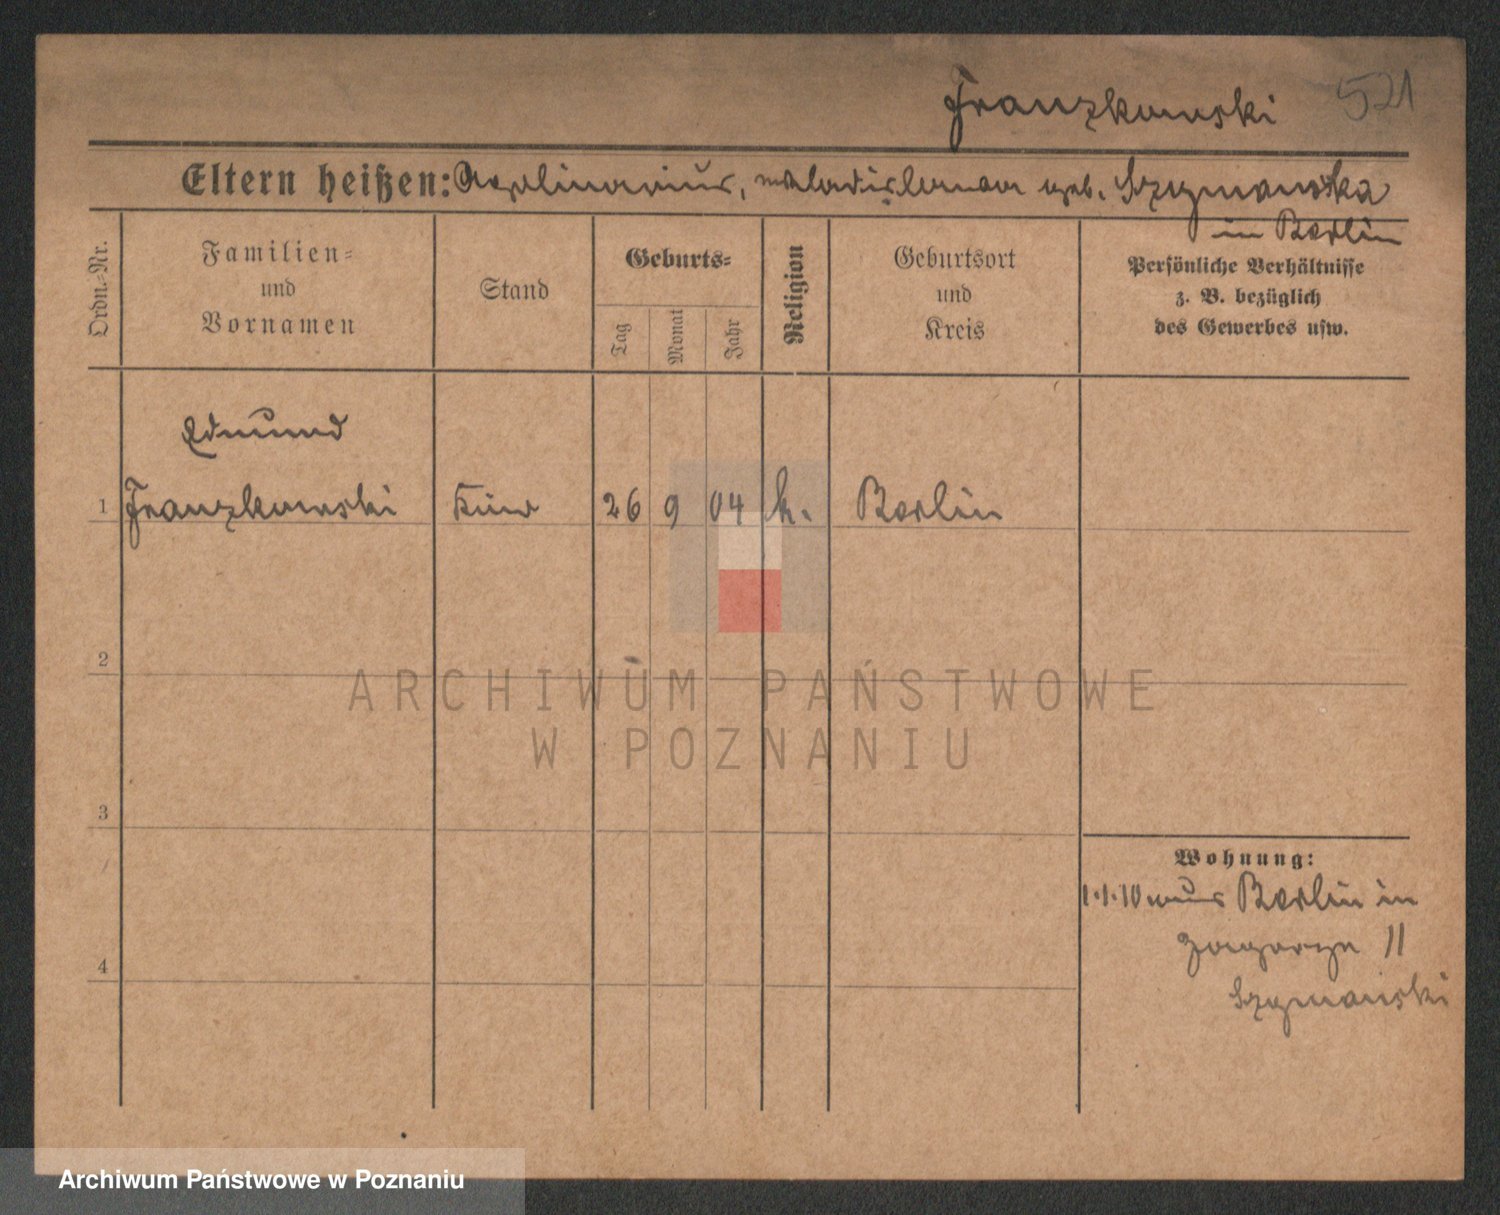 Franzkowski 521
Eltern heißen: Apolinarius, Wladislawa geb. Szymanska
in Berlin
Ordn.-Nr.
Familien=
und
Vornamen
Stand
Geburts=
Tag
Monat
Jahr
Religion
Geburtsort
und
Kreis
Persönliche Verhältnisse
z. B. bezüglich
des Gewerbes usw.
Edmund
1 Franzkowski Kind 26 9 04 k. Berlin
2
3
4
Wohnung:
1.1.10 aus Berlin in
Zagorze II
Szymański
ARCHIWUM PAŃSTWOWE
W POZNANIU
Archiwum Państwowe w Poznaniu